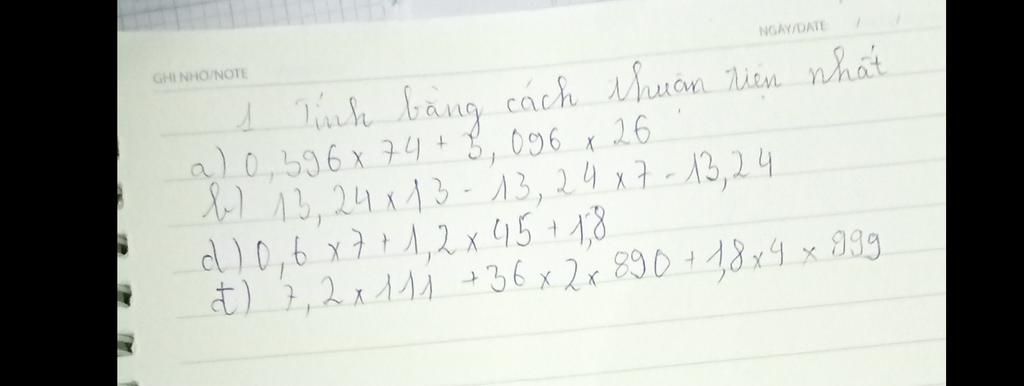 NGÀY/DATE / /
GHI NHỚ/NOTE
1 Tính bằng cách thuận tiện nhất
a) 0,396 x 74 + 3,096 x 26
b) 13,24 x 13 - 13,24 x 7 - 13,24
d) 0,6 x 7 + 1,2 x 45 + 1,8
t) 7,2 x 111 + 36 x 2 x 890 + 1,8 x 4 x 999